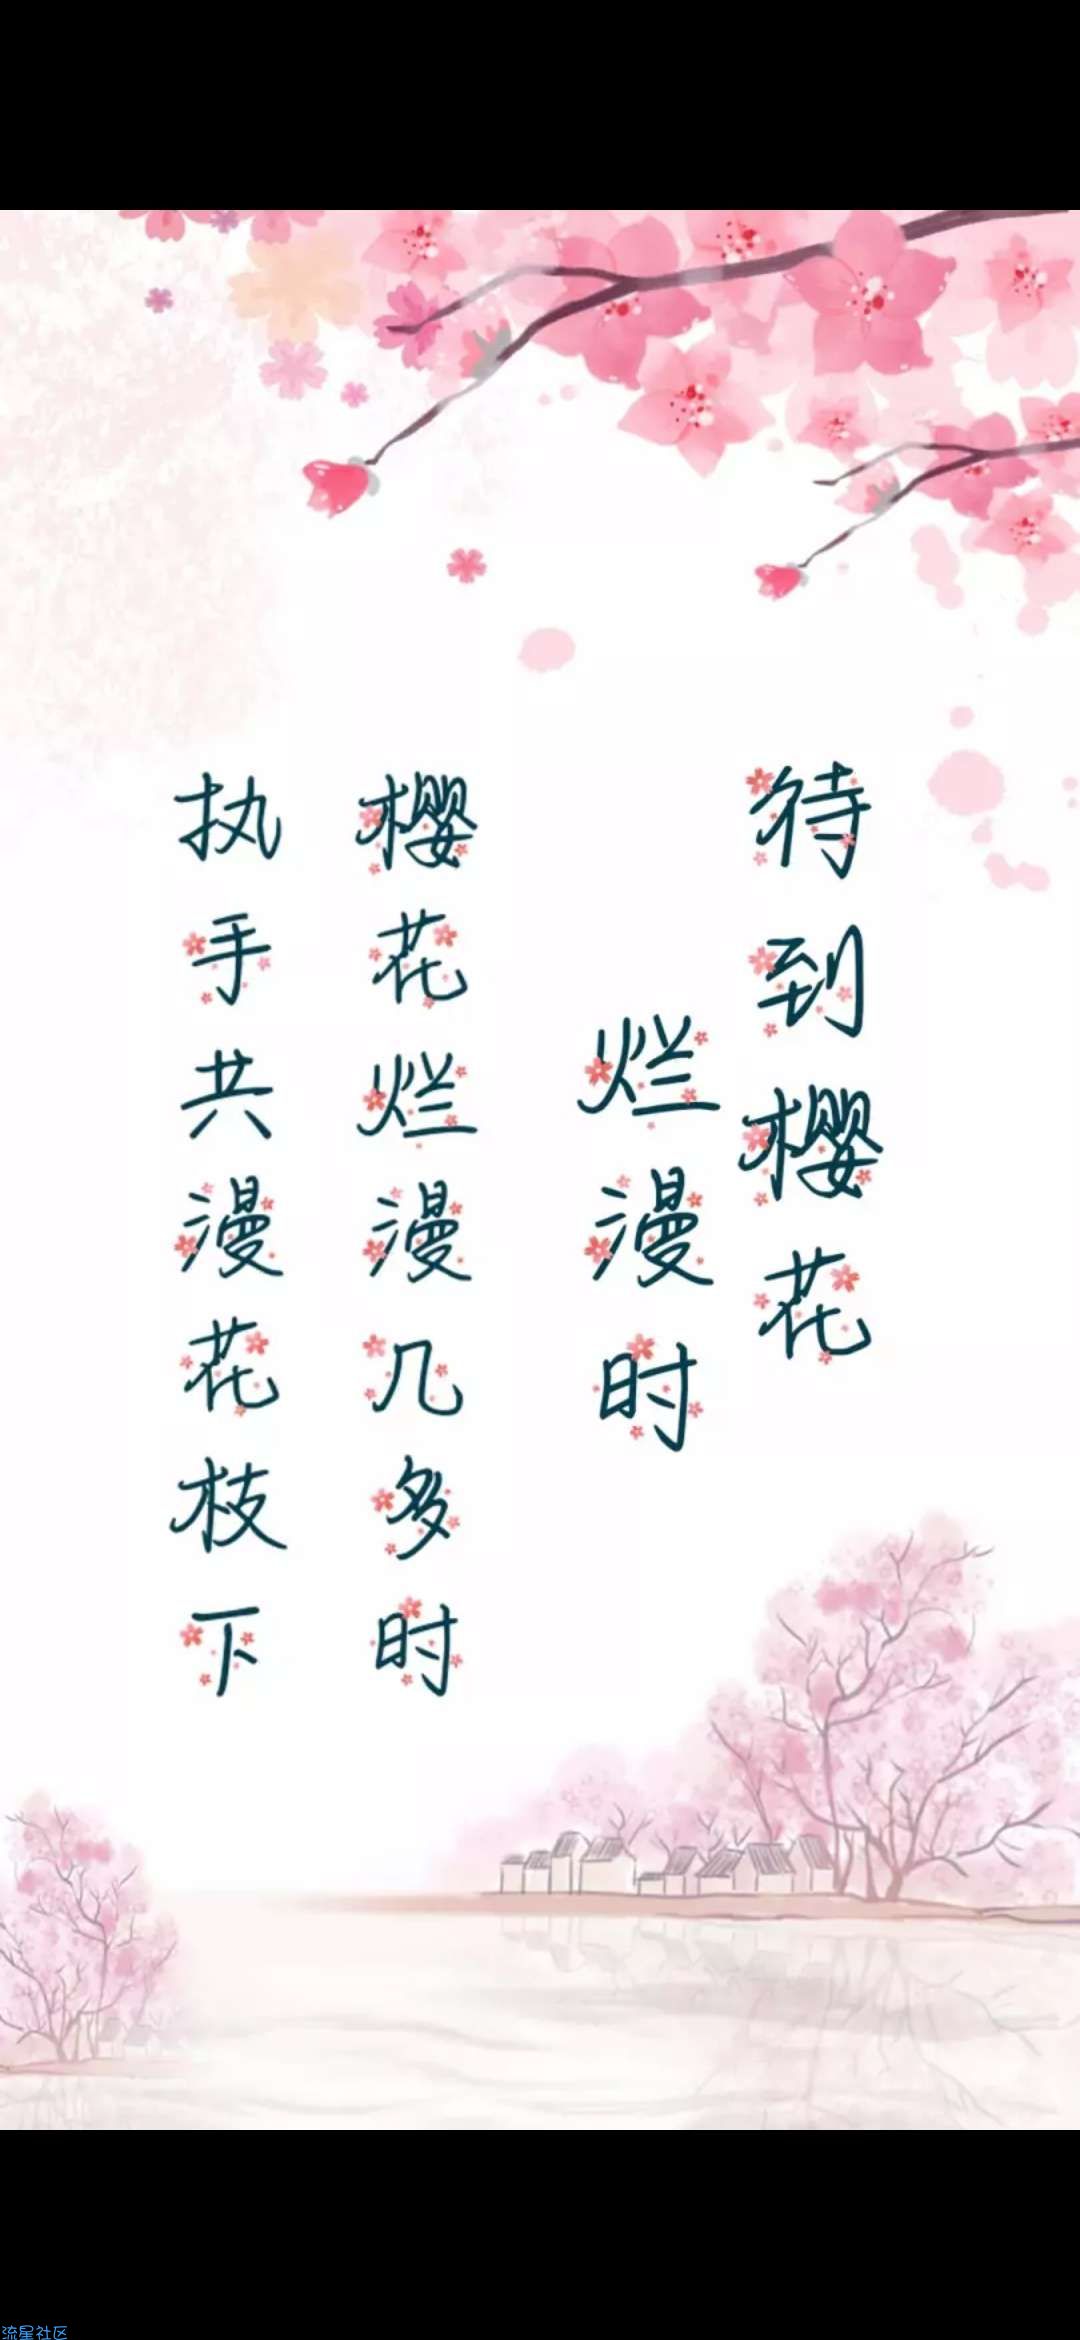 待到樱花
烂漫时
樱花烂漫几多时
执手共漫花枝下
流星社区